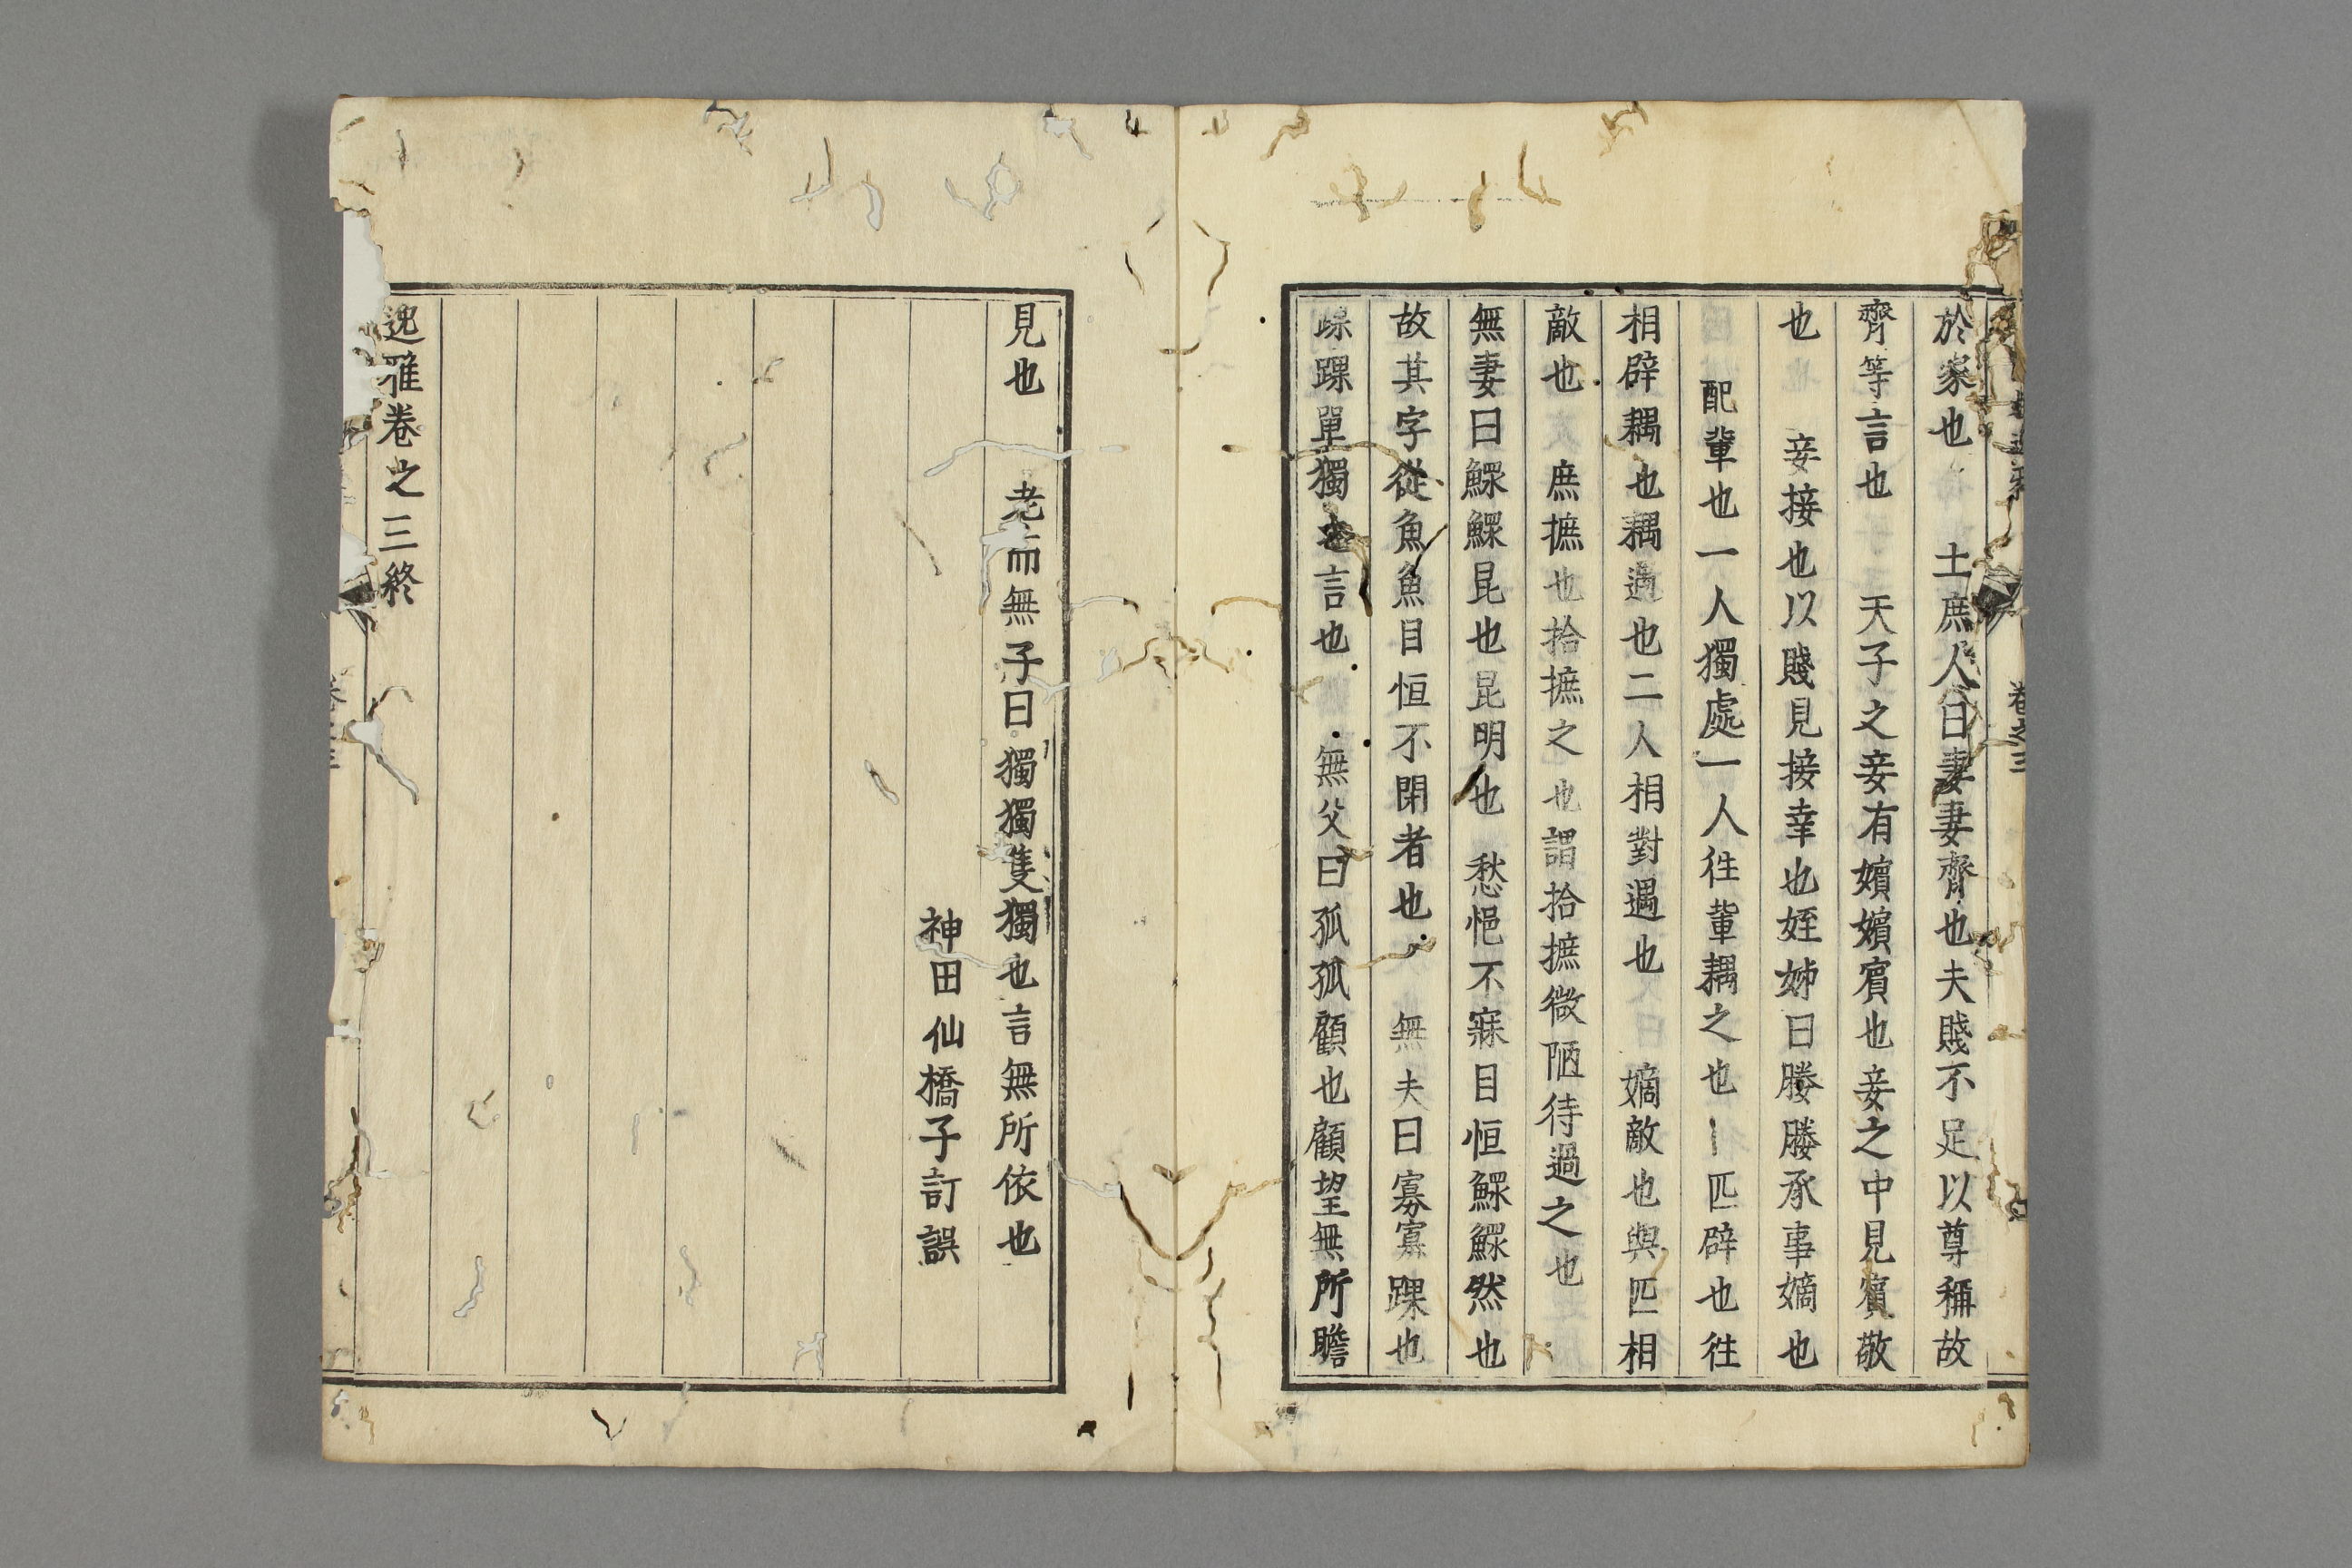 於家也 士庶人曰妻妻齊也夫賤不足以尊稱故
齊等言也 天子之妾有嬪嬪賓也妾之中見賓敬
也 妾接也以賤見接幸也姪娣曰媵媵承事嫡也
配輩也一人獨處一人徃輩耦之也 匹辟也徃
相辟耦也耦遇也二人相對遇也 嫡敵也與匹相
敵也 庶摭也拾摭之也謂拾摭微陋待過之也
無妻曰鰥鰥昆也昆明也 愁悒不寐目恒鰥鰥然也
故其字從魚魚目恒不閉者也 無夫曰寡寡踝也
踝踝單獨之言也 無父曰孤孤顧也顧望無所瞻
卷之三
見也 老而無子曰獨獨隻獨也言無所依也
神田仙橋子訂誤
逸雅卷之三終